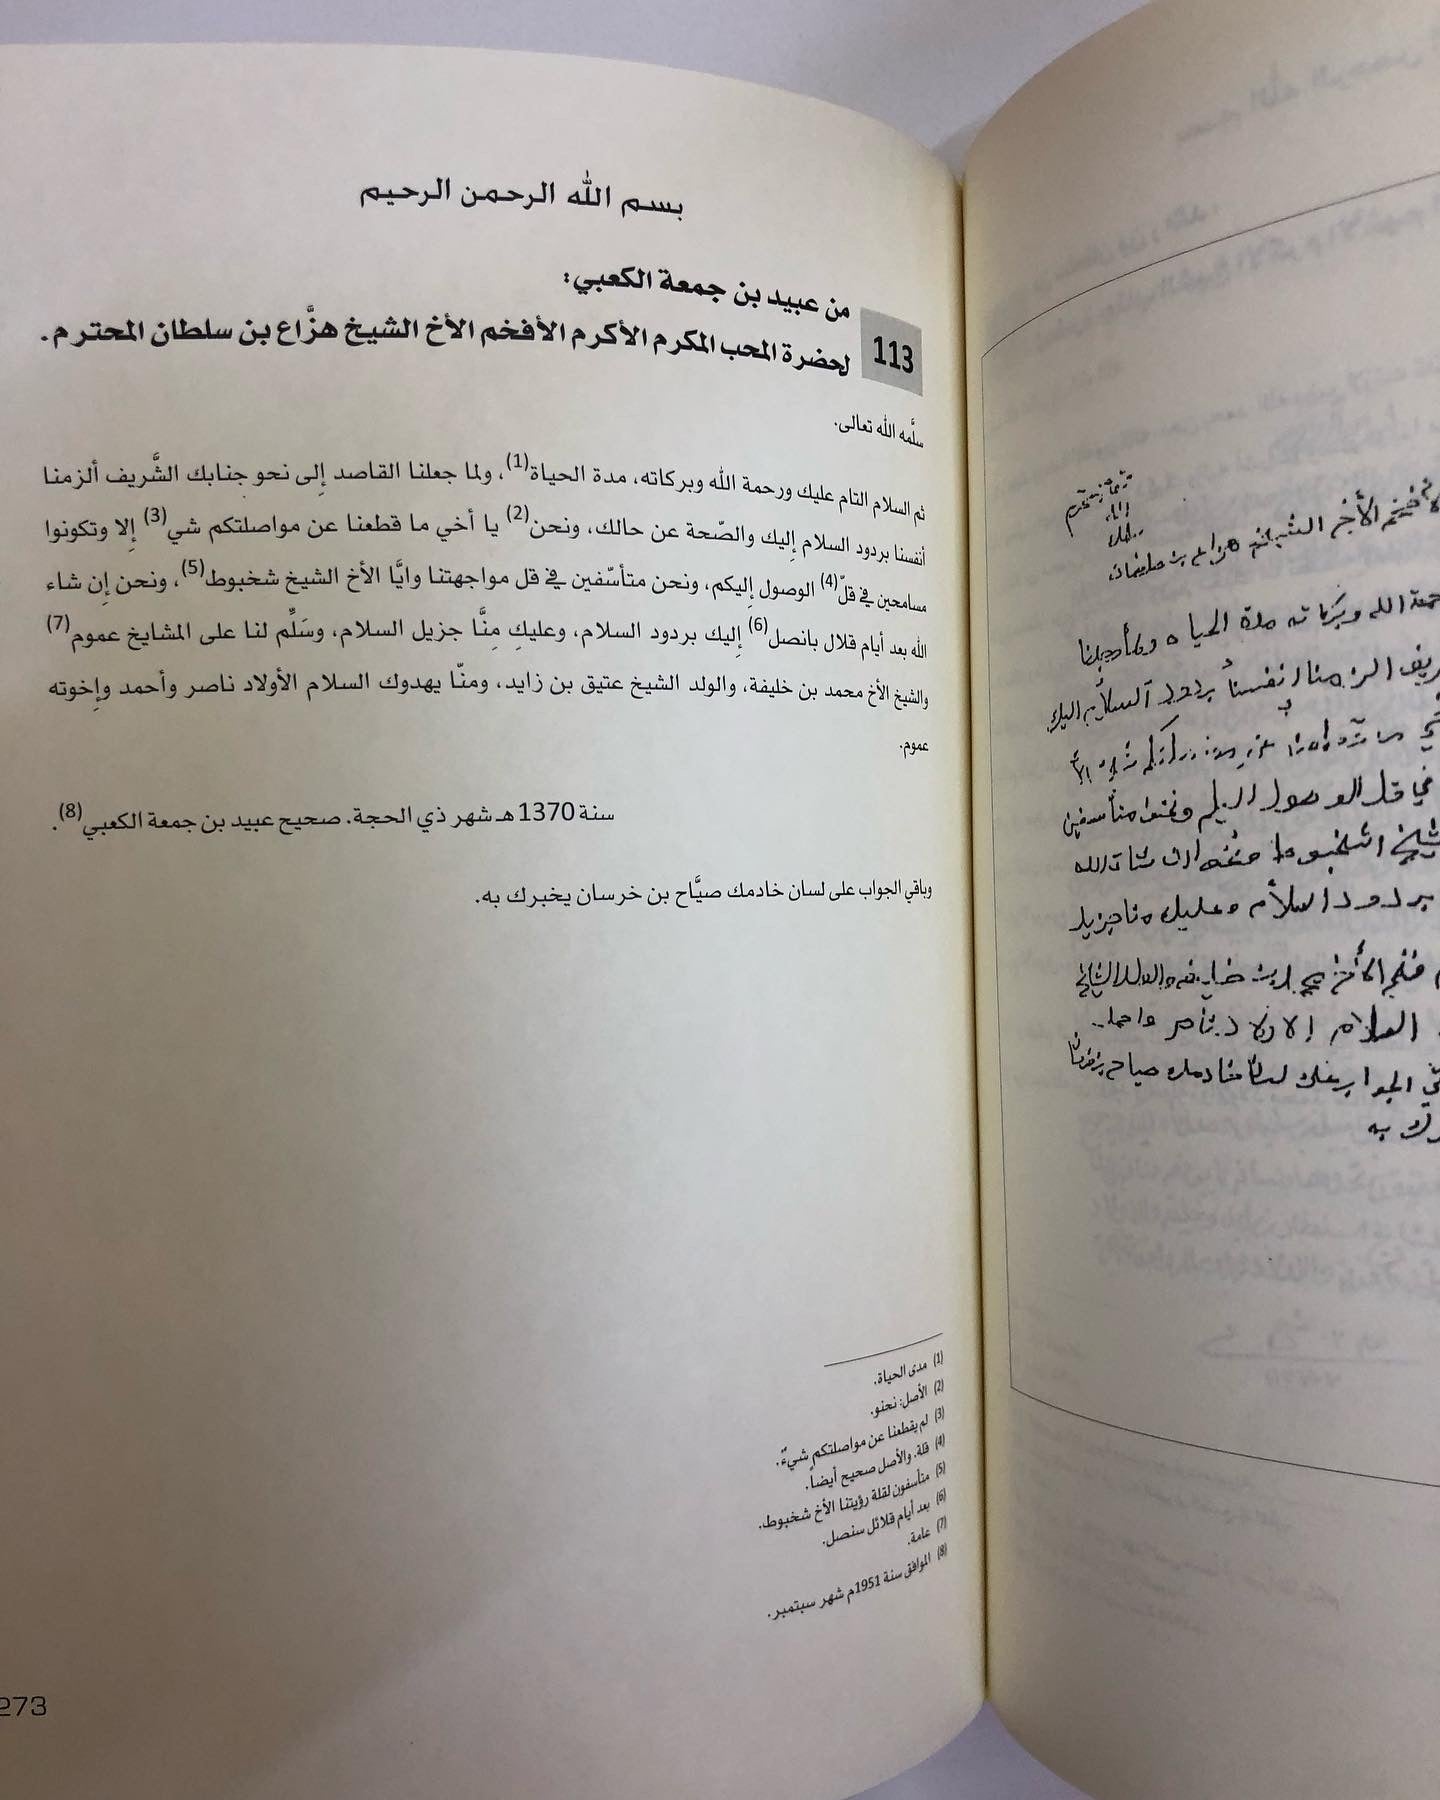 بسم الله الرحمن الرحيم
113
من عبيد بن جمعة الكعبي:
لحضرة المحب المكرم الأكرم الأفخم الأخ الشيخ هزَّاع بن سلطان المحترم.
سلَّمه الله تعالى.
ثم السلام التام عليك ورحمة الله وبركاته، مدة الحياة(1)، ولما جعلنا القاصد إلى نحو جنابك الشَّريف ألزمنا
أنفسنا بردود السلام إليك والصّحة عن حالك، ونحن(2) يا أخي ما قطعنا عن مواصلتكم شي(3) إلا وتكونوا
مسامحين في قلّ(4) الوصول إليكم، ونحن متأسّفين في قل مواجهتنا وايَّا الأخ الشيخ شخبوط(5)، ونحن إن شاء
الله بعد أيام قلال بانصل(6) إليك بردود السلام، وعليك مِنَّا جزيل السلام، وسَلِّم لنا على المشايخ عموم(7)
والشيخ الأخ محمد بن خليفة، والولد الشيخ عتيق بن زايد، ومنّا يهدوك السلام الأولاد ناصر وأحمد وإخوته
عموم.
سنة 1370 هـ شهر ذي الحجة. صحيح عبيد بن جمعة الكعبي(8).
وباقي الجواب على لسان خادمك صيَّاح بن خرسان يخبرك به.
(1) مدى الحياة.
(2) الأصل: نحنو.
(3) لم يقطعنا عن مواصلتكم شيءٌ.
(4) قلة. والأصل صحيح أيضاً.
(5) متأسفون لقلة رؤيتنا الأخ شخبوط.
(6) بعد أيام قلائل سنصل.
(7) عامة.
(8) الموافق سنة 1951م شهر سبتمبر.
273
الأخ الشيخ هزاع بن سلطان
الله وبركاته مدة الحياة
الزمنا انفسنا بردود السلام اليك
في قل الوصول اليكم ونحن متأسفين
بردود السلام وعليك منا جزيل
السلام الاولاد ناصر واحمد
به